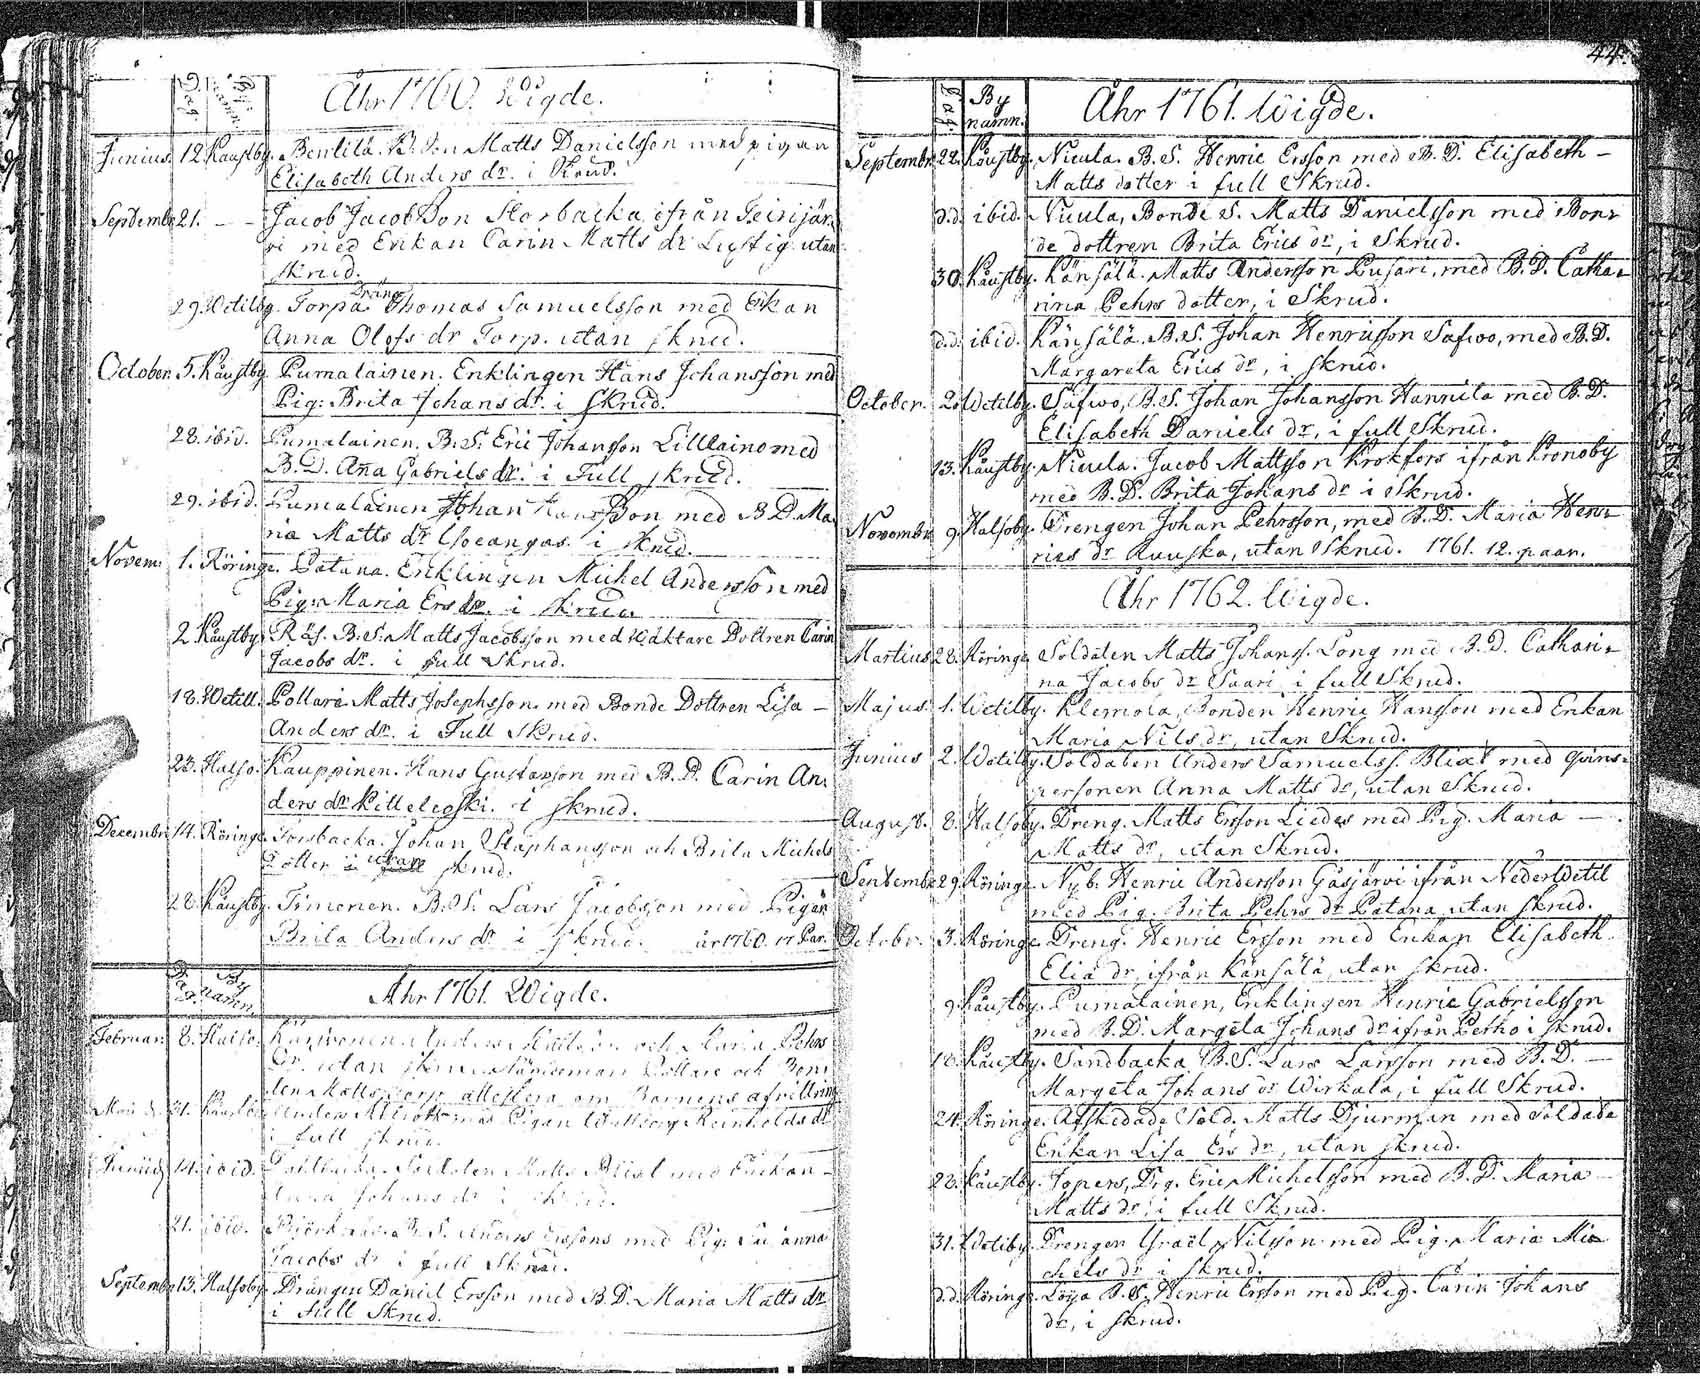 Dag. By namn. Åhr 1760. Wigde.
Junius. 12. Kaustby. Bentilä. Matts Danielsson med pigan
Elisabeth Anders dr. i Skrud.
Septembr 21. - - Jacob JacobSson Storbacka ifrån Teirijär-
vi med Enkan Carin Matts dr Lustig utan
skrud.
Dräng
29. Wetilby. Torpa Thomas Samuelsson med Enkan
Anna Olofs dr Torp. utan skrud.
October. 5. Kaustby. Pumalainen. Enklingen Hans Johansson med
Pig: Brita Johans dr. i skrud.
28. ibid. Pumalainen. B. S. Eric Johansson Lilllaino med
B. D. Anna Gabriels dr. i Full skrud.
29. ibid. Pumalainen Johan HansSon med B D Ma-
ria Matts dr i skrud.
Novem: 1. Röringe. Patana. Enklingen Michel Andersson med
Pig: Maria Ers dr. i skrud.
2. Kaustby. Räs. B. S. Matts Jacobsson med Wäktare Dottren Carin
Jacobs dr. i full Skrud.
18. Wetill. Pollari Matts Josephsson med Bonde Dottren Lisa -
Anders dr. i Full Skrud.
23. Halso. Kauppinen. Hans Gustavsson med B. D. Carin An-
ders dr i skrud.
Decembr 14. Röringe. Torsbacka. Johan Staphansson och Brita Michels
Dotter i utan skrud.
28. Kaustby. Timonen. B. S. Lars Jacobsson med Pigan
Brita Anders dr i skrud. år 1760. 17 Par.
Dag. By namn. Åhr 1761. Wigde.
Februar. 8. Halso. Anders och Maria Pehrs
Dr. utan skrud Pollare och Bon-
den Matts attestera om Barnens
31. Anders med Pigan Reinholds dr
i full skrud.
Junius 14. ibid. Soldaten Matts Blixt med Enkan -
Johans dr i skrud.
21. ibid. B. S. Anders Erssons med Pig: Susanna
Jacobs dr i full Skrud.
Septembr 13. Halsoby. Drängen Daniel Ersson med B. D. Maria Matts dr
i full Skrud.
44.
Dag. By namn. Åhr 1761. Wigde.
Septembr. 22. Kaustby. Nicula. B. S. Henric Ersson med B. D. Elisabeth -
Matts dotter i full Skrud.
d.d. ibid. Nicula, Bonde S. Matts Danielsson med Bon-
de dottren Brita Erics dr, i Skrud.
30. Kaustby. Känsälä. Matts Andersson Pusari, med B. D. Catha-
rina Pehrs dotter, i Skrud.
d.d. ibid. Känsälä. B. S. Johan Henricsson Safwo, med B. D.
Margareta Erics dr, i skrud.
October. 2. Wetilby. Safwo, B. S. Johan Johansson Hannila med B. D.
Elisabeth Daniels dr, i full Skrud.
13. Kaustby. Nicula. Jacob Mattsson Krokfors ifrån Kronoby
med B. D. Brita Johans dr i Skrud.
Novembr 9. Halsoby. Drengen Johan Pehrsson, med B. D. Maria Hen-
rics dr Ruuska, utan Skrud. 1761. 12. paar.
Åhr 1762. Wigde.
Martius 28. Röringe. Soldaten Matts Johanss. Long med B. D. Cathari-
na Jacobs dr Saari, i full Skrud.
Majus. 1. Wetilby. Klemola, Bonden Henric Hansson med Enkan
Maria Nils dr, utan Skrud.
Junius 2. Wetilby. Soldaten Anders Samuelss. Blixt med qvins-
personen Anna Matts dr, utan Skrud.
August. 8. Halsoby. Dreng. Matts Ersson Liedes med Pig. Maria -
Matts dr, utan Skrud.
Septembr 29. Röringe. Nyb. Henric Andersson Gåsjärvi ifrån NederWetil
med Pig. Brita Pehrs dr Patana utan skrud.
Octobr. 3. Röringe. Dreng. Henric Ersson med Enkan Elisabeth
Eliæ dr, ifrån Känsälä, utan skrud.
9. Kaustby. Pumalainen, Enklingen Henric Gabrielsson
med B. D. Margeta Johans dr ifrån Petho i skrud.
10. Kaustby. Sandbacka B. S. Lars Larsson med B. D. -
Margeta Johans dr Wirkala, i full Skrud.
24. Röringe. Afskedade Sold. Matts Djurman med Soldade
Enkan Lisa Ers dr, utan skrud.
28. Kaustby. Topers, Drg. Eric Michelsson med B. D. Maria -
Matts dr, i full Skrud.
31. Wetilby. Drengen Israel Nilsson med Pig. Maria Mi-
chels dr i skrud.
d.d. Röringe. Löija B. S. Henric Ersson med Pig. Carin Johans
dr, i skrud.